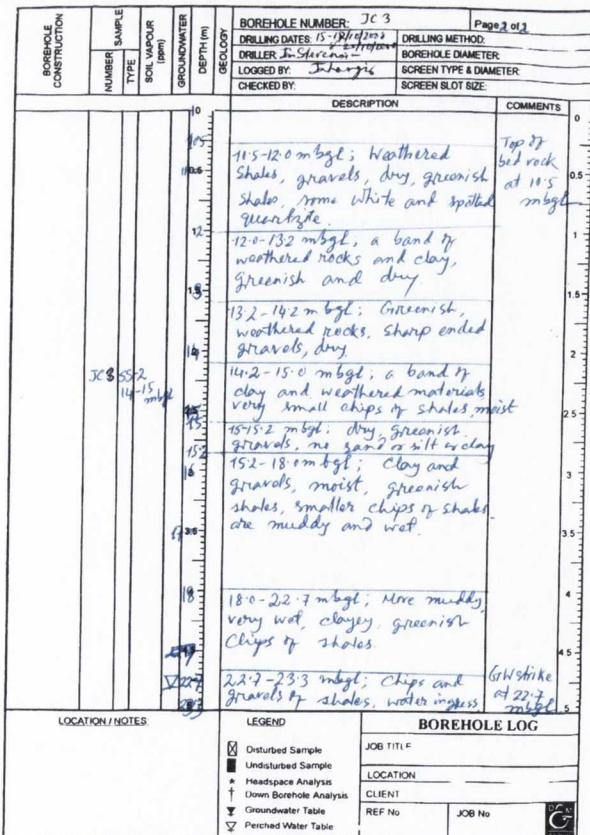 BOREHOLE CONSTRUCTION
SAMPLE
NUMBER
TYPE
SOIL VAPOUR (ppm)
GROUNDWATER
DEPTH (m)
GEOLOGY
BOREHOLE NUMBER: JC 3
Page 2 of 2
DRILLING DATES:
DRILLING METHOD:
DRILLER:
BOREHOLE DIAMETER:
LOGGED BY:
SCREEN TYPE & DIAMETER:
CHECKED BY:
SCREEN SLOT SIZE:
DESCRIPTION
COMMENTS
11.5-12.0 mbgl; Weathered
Shales, gravels, dry, greenish
shales, some white and spotted
quartzite.
Top of
bed rock
at 10.5
mbgl
12.0-13.2 mbgl, a band of
weathered rocks and clay,
greenish and dry
13.2-14.2 mbgl; Greenish,
weathered rocks, sharp ended
gravels, dry
JC3 SS-2
14-15
mbgl
14.2-15.0 mbgl; a band of
clay and weathered materials
very small chips of shales, moist
15-15.2 mbgl; dry, greenish
gravels, no sand or silt or clay
15.2-18.0 mbgl; Clay and
gravels, moist, greenish
shales, smaller chips of shales
are muddy and wet.
18.0-22.7 mbgl; More muddy,
very wet, clayey, greenish
Chips of shales.
22.7-23.3 mbgl; Chips and
gravels of shales, water ingress
GW strike
at 22.7
mbgl
0
0.5
1
1.5
2
2.5
3
3.5
4
4.5
5
LOCATION / NOTES
LEGEND
Disturbed Sample
Undisturbed Sample
Headspace Analysis
Down Borehole Analysis
Groundwater Table
Perched Water Table
BOREHOLE LOG
JOB TITLE
LOCATION
CLIENT
REF No
JOB No